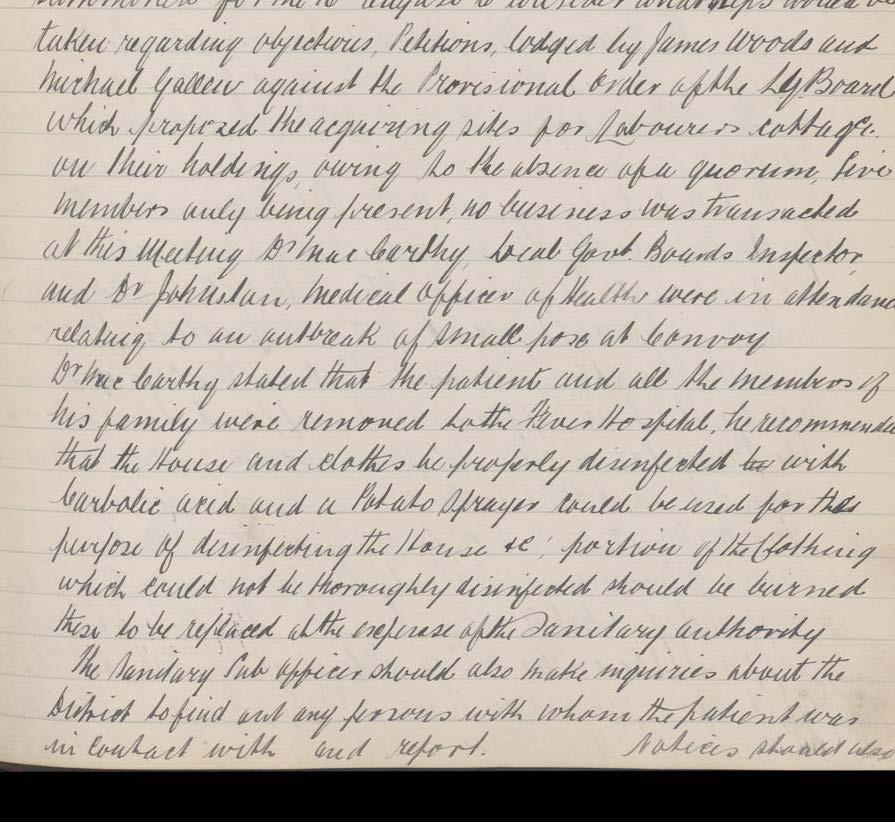 summoned for the 16 august to consider what steps would be
taken regarding objections, Petitions, lodged by James Woods and
Michael Gallen against the Provisional Order of the LG. Board
which proposed the acquiring sites for Labourers cottages
on their holdings, owing to the absence of a quorum, five
members only being present, no business was transacted
at this Meeting Dr Mac Carthy, Local Govt. Boards Inspector,
and Dr Johnston, Medical Officer of Health were in attendance
relating to an outbreak of small pox at Convoy
Dr Mac Carthy stated that the patient and all the members of
his family were removed to the Fever Hospital, he recommended
that the House and clothes be properly disinfected with
Carbolic acid and a Potato Sprayer could be used for this
purpose of disinfecting the House &c, portion of the Clothing
which could not be thoroughly disinfected should be burned
these to be replaced at the expense of the Sanitary authority
The Sanitary Sub officer should also make inquiries about the
District to find out any persons with whom the patient was
in contact with and report. Notices should also